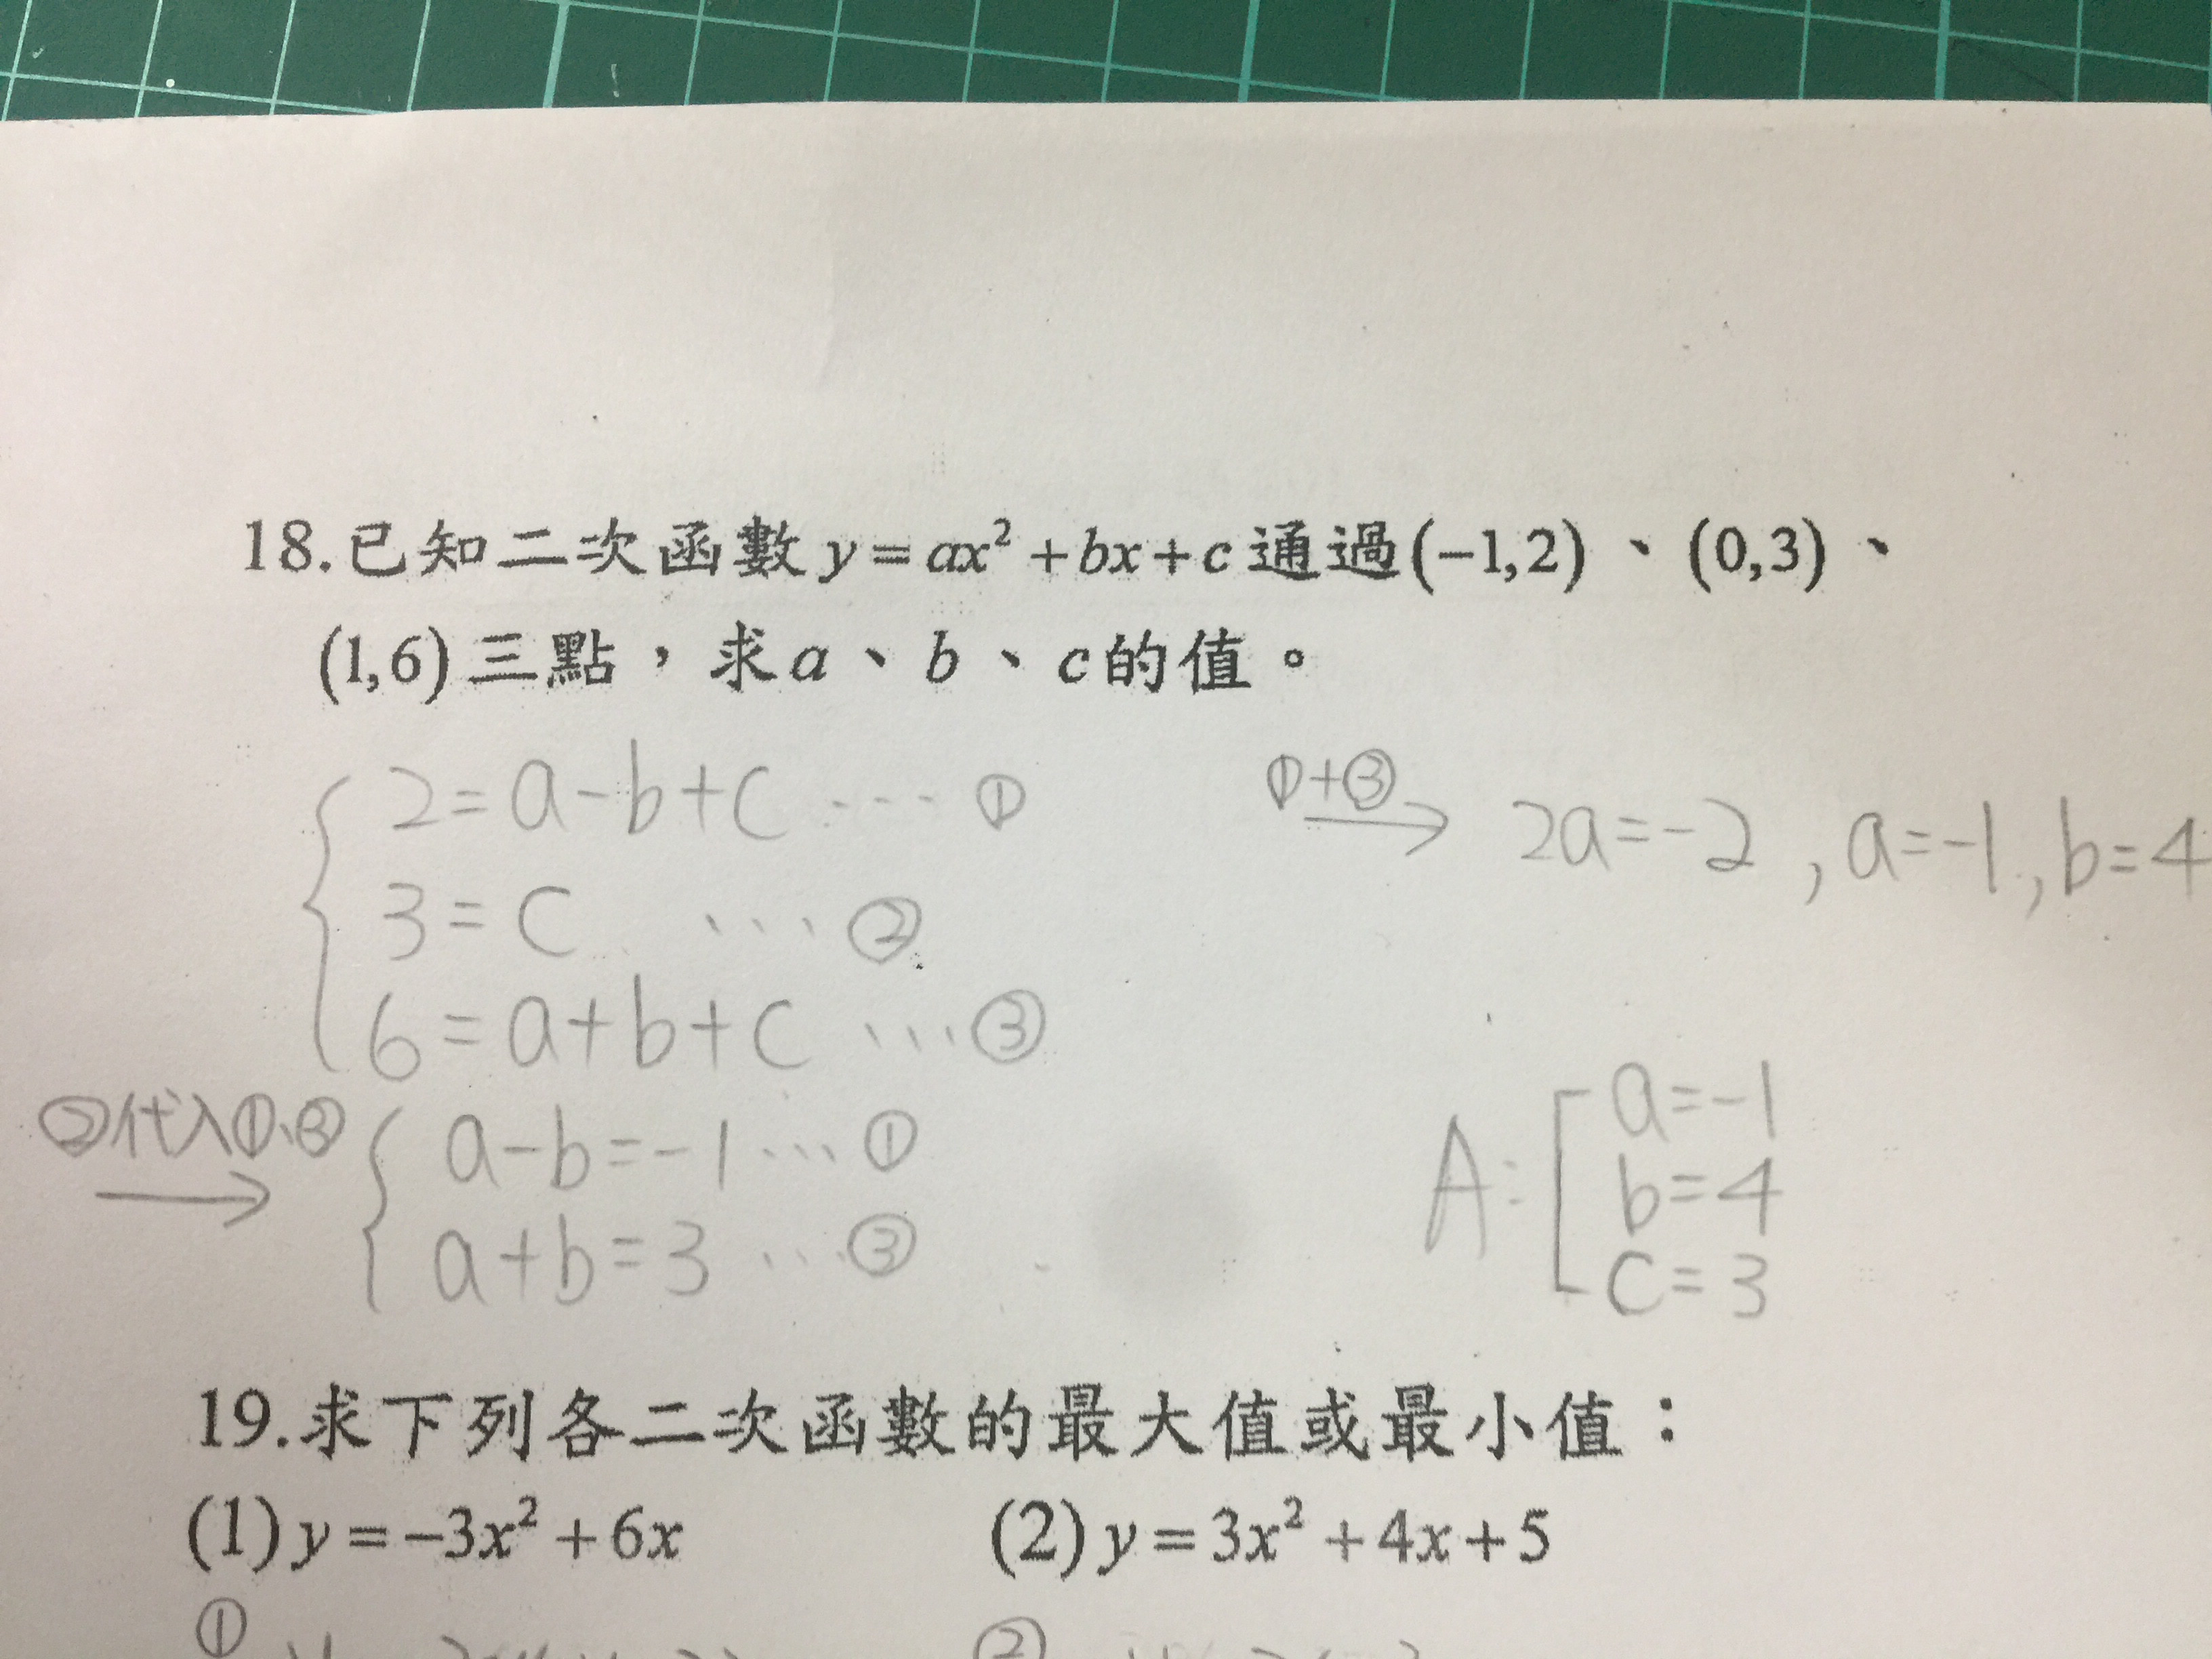 18.已知二次函數 y = ax² + bx + c 通過(−1,2)、(0,3)、
(1,6)三點,求a、b、c的值。
2=a-b+c ---- ①
3=c ···· ②
6=a+b+c ···③
②代入①、③
→
a-b=-1 ··· ①
a+b=3 ··· ③
①+③
→ 2a=-2 , a=-1, b=4
A: a=-1
b=4
c=3
19.求下列各二次函數的最大值或最小值:
(1) y = −3x² + 6x (2) y = 3x² + 4x + 5
① ②